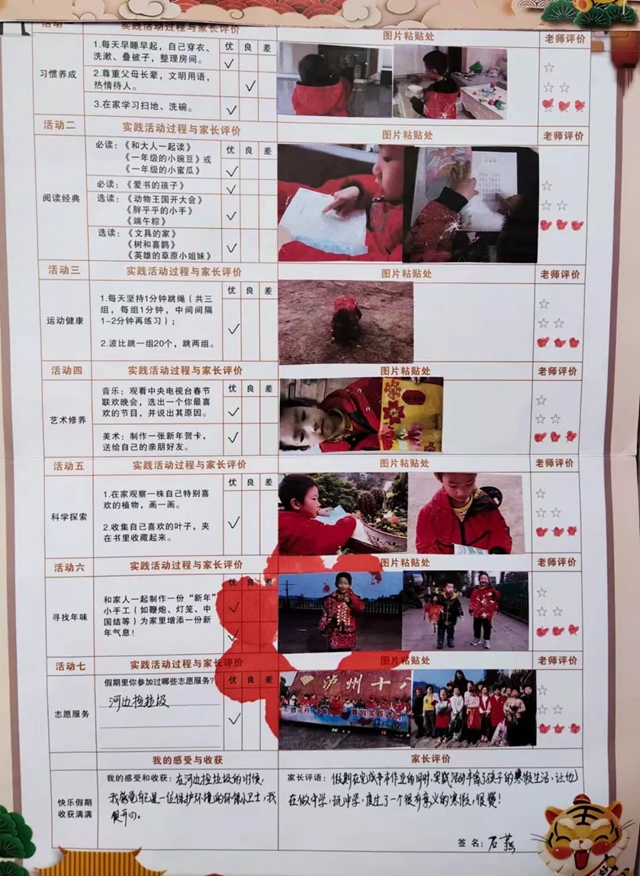 活动一 实践活动过程与家长评价 图片粘贴处 老师评价
习惯养成
优 良 差
1.每天早睡早起，自己穿衣、
洗漱、叠被子，整理房间。
2.尊重父母长辈，文明用语，
热情待人。
3.在家学习扫地、洗碗。
活动二 实践活动过程与家长评价 图片粘贴处 老师评价
阅读经典
优 良 差
必读：《和大人一起读》
《一年级的小豌豆》或
《一年级的小蜜瓜》
必读：《爱书的孩子》
选读：《动物王国开大会》
《胖乎乎的小手》
《端午粽》
选读：《文具的家》
《树和喜鹊》
《英雄的草原小姐妹》
活动三 实践活动过程与家长评价 图片粘贴处 老师评价
运动健康
优 良 差
1.每天坚持1分钟跳绳（共三
组，每组1分钟，中间间隔
1-2分钟再练习）；
2.波比跳一组20个，跳两组。
活动四 实践活动过程与家长评价 图片粘贴处 老师评价
艺术修养
优 良 差
音乐：观看中央电视台春节
联欢晚会，选出一个你最喜
欢的节目，并说出其原因。
美术：制作一张新年贺卡，
送给自己的亲朋好友。
活动五 实践活动过程与家长评价 图片粘贴处 老师评价
科学探索
优 良 差
1.在家观察一株自己特别喜
欢的植物，画一画。
2.收集自己喜欢的叶子，夹
在书里收藏起来。
活动六 实践活动过程与家长评价 图片粘贴处 老师评价
寻找年味
优 良 差
和家人一起制作一份“新年”
小手工（如鞭炮、灯笼、中
国结等）为家里增添一份新
年气息！
活动七 实践活动过程与家长评价 图片粘贴处 老师评价
志愿服务
优 良 差
假期里你参加过哪些志愿服务？
河边捡垃圾
泸州十八
我的感受与收获 家长评价
快乐假期
收获满满
我的感受和收获：在河边捡垃圾的时候，
我感觉自己是一位保护环境的环保小卫士，我
很开心。
家长评语：假期在完成书本作业的同时，实践活动丰富了孩子的寒假生活，让他
在做中学，玩中学，度过了一个很有意义的寒假，很赞！
签名：石燕